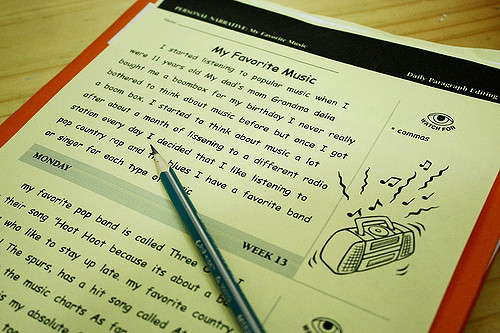 PERSONAL NARRATIVE: My Favorite Music
Daily Paragraph Editing
Name
My Favorite Music
I started listening to popular music when I
were 11 years old My dad's mom Grandma delia
bought me a boombox for my birthday I never really
bothered to think about music before but once I got
a boom box, I started to think about music a lot
after about a month of lissening to a different radio
station every day I decided that I like listening to
pop country rap and blues I have a favorite band
or singer for each type
WATCH FOR
• commas
MONDAY
WEEK 13
my favorite pop band is called Three
their song "Hoot Hoot because its about a
who like to stay up late. my favorite country
The spurs, has a hit song called
the music charts As far
is my absolute
WATCH FOR